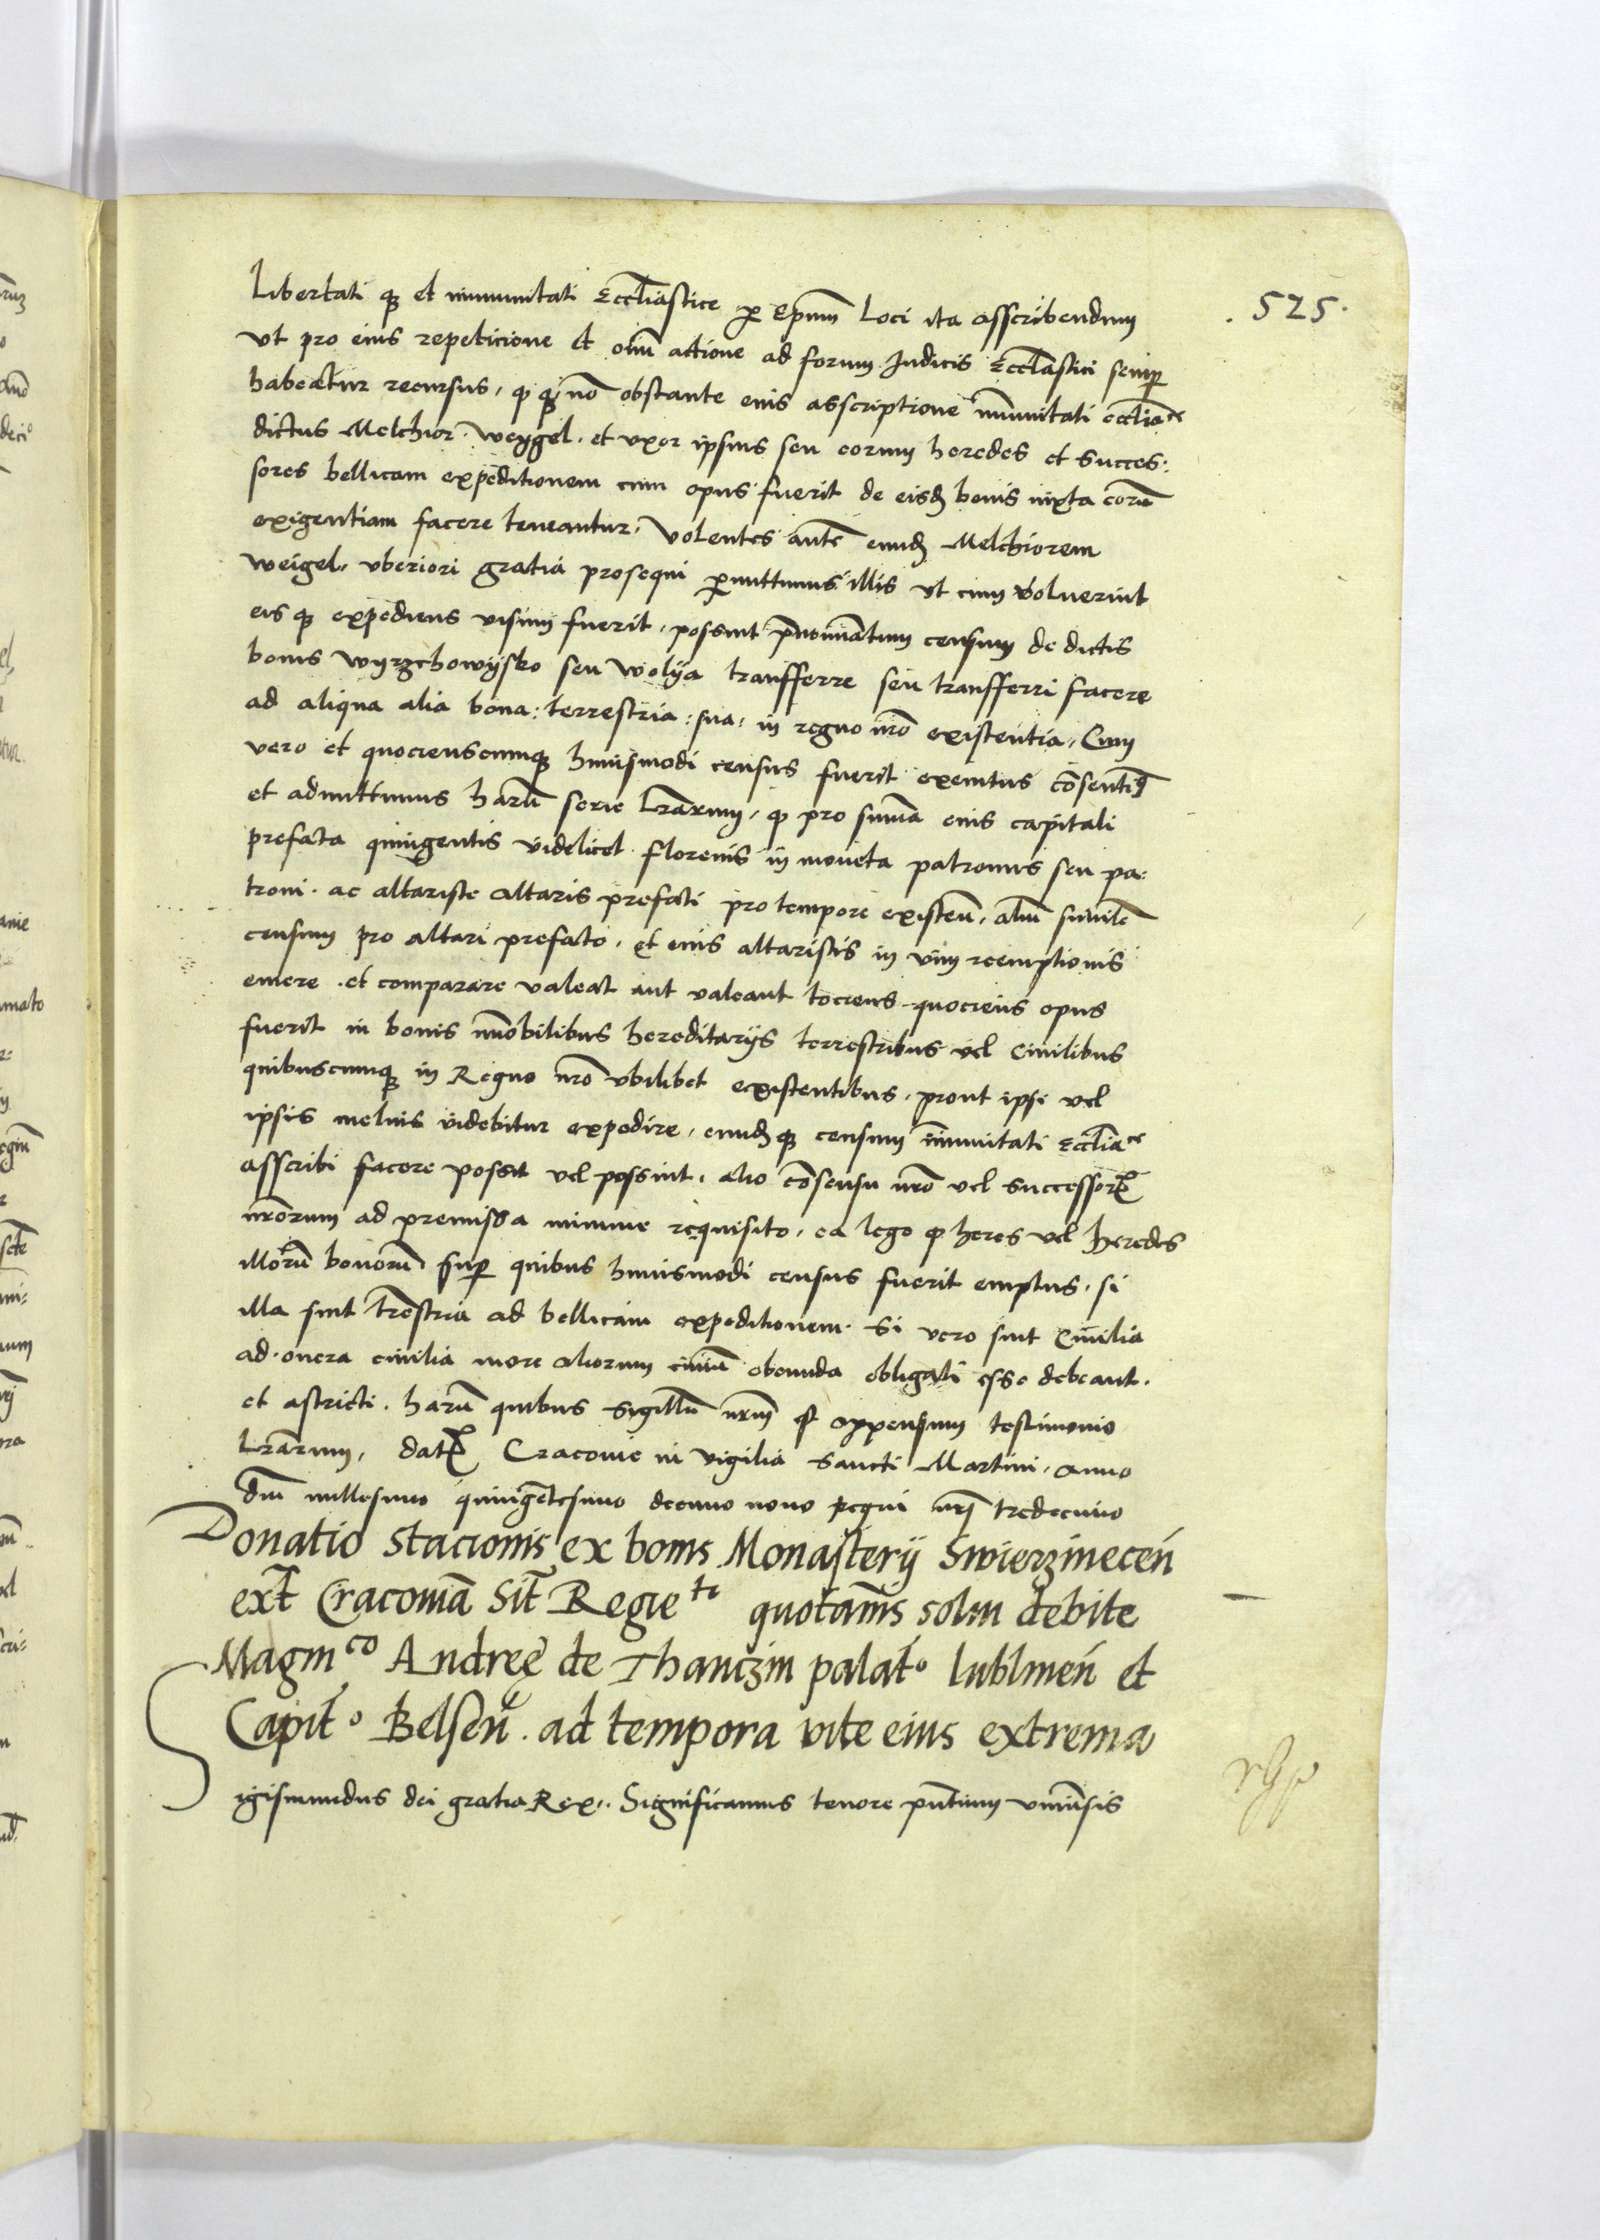 . 525 .
Libertati q₃ et immunitati Eccl̄iastice ꝑ Ep̄um Loci ita asscribendum
vt pro eius repeticione et om̄i actione ad forum Judicis Eccl̄astici semꝑ
habeatur recursus, ꝙ q₃ nō obstante eius asscriptione im̄unitati eccl̄iace
dictus Melchior. Weygel. et vxor ipsius seu eorum heredes et succes:
sores bellicam expeditionem cum opus fuerit de eisd bonis iuxta eorū
exigentiam facere teneantur. Volentes aut̄e eund Melchiorem
Weigel, vberiori gratia prosequi ꝑmittimus illis vt cum voluerint
eis q₃ expediens visum fuerit, possint p̄nominatum censum de dictis
bonis Wyrzchowysko seu Wolya transfferre seu transfferri facere
ad aliqua alia bona: terrestria: sua, in regno nr̄o existentia, Cum
vero et quocienscumq₃ huiusmodi census fuerit exemtus cōsentimꝰ
et admittimus harū serie Lr̄arum, ꝙ pro summa eius capitali
prefata quingentis videlicet florenis in moneta patronus seu pa:
troni. ac altariste altaris prefati pro tempore existeñ. aliū similē
censum pro altari prefato, et eius altaristis in vim reemptionis
emere. et comparare valeat aut valeant tociens quociens opus
fuerit in bonis im̄obilibus hereditarijs terrestribus vel Ciuilibus
quibuscumq₃ in Regno nr̄o vbilibet existentibus, prout ipsi vel
ipsis melius videbitur expedire, eund q₃ censum im̄unitati Eccl̄iace
asscribi facere possit vel possint, alio cōsensu nr̄o vel successorꝝ
nr̄orum ad premissa minime requisito, ea lege ꝙ heres vel heredes
illorū bonorū suꝑ quibus huiusmodi census fuerit emptus, si
illa sint tr̄estria ad bellicam expeditionem. Si vero sint Ciuilia
ad onera ciuilia more aliorum ciuiū obeunda obligati esse debeant.
et astricti. harū quibus sigillū nr̄um ē appensum testimonio
Lr̄arum, datꝝ Cracouie in vigilia Sancti Martini, anno
dn̄i millesimo quingētesimo decimo nono regni nrī tredecimo
Donatio stacionis ex bonis Monasterij Swierzineceñ
ext̄ Cracouiā Sit̄ Regie te quotan̄is solui debite
Magnco Andreę de Thanczin palat̄o lublineñ et
Capit̄o Belseñ. ad tempora vite eius extrema
Sigismundus dei gratia Rex.. Significamus tenore pn̄tium vniuersis